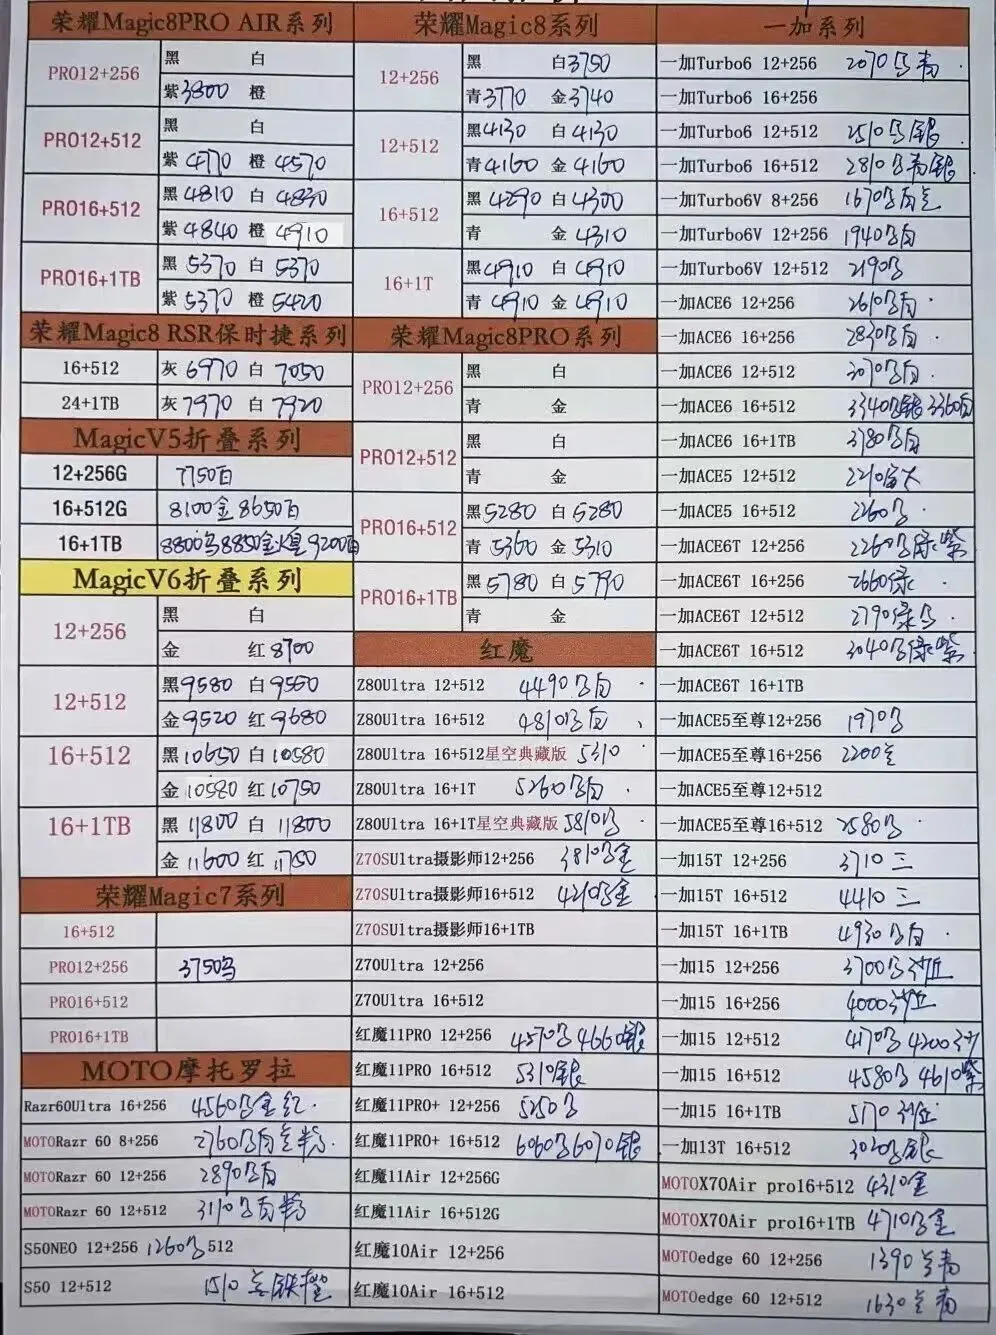 荣耀Magic8PRO AIR系列
PRO12+256
黑 白
紫3800 橙
PRO12+512
黑 白
紫4770 橙4570
PRO16+512
黑4810 白4830
紫4840 橙4910
PRO16+1TB
黑5370 白5370
紫5370 橙5420
荣耀Magic8 RSR保时捷系列
16+512 灰6970 白7050
24+1TB 灰7970 白7920
MagicV5折叠系列
12+256G 7750白
16+512G 8100金8650白
16+1TB 8800乌8850金 9200白
MagicV6折叠系列
12+256
黑 白
金 红8700
12+512
黑9580 白9550
金9520 红9680
16+512
黑10650白10580
金10580红10750
16+1TB
黑11800白11800
金11600红11750
荣耀Magic7系列
16+512
PRO12+256 3750乌
PRO16+512
PRO16+1TB
MOTO摩托罗拉
Razr60Ultra 16+256 4560乌金红
MOTORazr 60 8+256 2760乌白兰粉
MOTORazr 60 12+256 2890乌白
MOTORazr 60 12+512 3110乌白粉
S50NEO 12+256 1260乌512
S50 12+512 1510兰铁橙
荣耀Magic8系列
12+256
黑 白3750
青3770 金3740
12+512
黑4130 白4130
青4160 金4160
16+512
黑4290 白4300
青 金4310
16+1T
黑4910 白4910
青4910 金4910
荣耀Magic8PRO系列
PRO12+256
黑 白
青 金
PRO12+512
黑 白
青 金
PRO16+512
黑5280 白5280
青5360 金5310
PRO16+1TB
黑5780 白5790
青 金
红魔
Z80Ultra 12+512 4490乌白
Z80Ultra 16+512 4810乌白
Z80Ultra 16+512星空典藏版 5310
Z80Ultra 16+1T 5260乌白
Z80Ultra 16+1T星空典藏版 5810乌
Z70SUltra摄影师12+256 3810乌金
Z70SUltra摄影师16+512 4210乌金
Z70SUltra摄影师16+1TB
Z70Ultra 12+256
Z70Ultra 16+512
红魔11PRO 12+256 4570乌4660银
红魔11PRO 16+512 5310银
红魔11PRO+ 12+256 5250乌
红魔11PRO+ 16+512 6060乌6070银
红魔11Air 12+256G
红魔11Air 16+512G
红魔10Air 12+256
红魔10Air 16+512
一加系列
一加Turbo6 12+256 2070乌青
一加Turbo6 16+256
一加Turbo6 12+512 2510乌银
一加Turbo6 16+512 2810乌青银
一加Turbo6V 8+256 1670乌白兰
一加Turbo6V 12+256 1940乌白
一加Turbo6V 12+512 2190乌
一加ACE6 12+256 2610乌白
一加ACE6 16+256 2830乌白
一加ACE6 12+512 3070乌白
一加ACE6 16+512 3340乌银3360白
一加ACE6 16+1TB 3780乌白
一加ACE5 12+512 2210
一加ACE5 16+512 2260乌
一加ACE6T 12+256 2260乌绿紫
一加ACE6T 16+256 2660绿
一加ACE6T 12+512 2790绿乌
一加ACE6T 16+512 3040乌绿紫
一加ACE6T 16+1TB
一加ACE5至尊12+256 1970乌
一加ACE5至尊16+256 2200兰
一加ACE5至尊12+512
一加ACE5至尊16+512 2580乌
一加15T 12+256 3710三
一加15T 16+512 4410三
一加15T 16+1TB 4930乌白
一加15 12+256 3700乌沙丘
一加15 16+256 4000沙丘
一加15 12+512 4170乌4200沙
一加15 16+512 4580乌4610紫
一加15 16+1TB 5170沙丘
一加13T 16+512 3030乌银
MOTOX70Air pro16+512 4310金
MOTOX70Air pro16+1TB 4710乌金
MOTOedge 60 12+256 1390兰青
MOTOedge 60 12+512 1630兰青